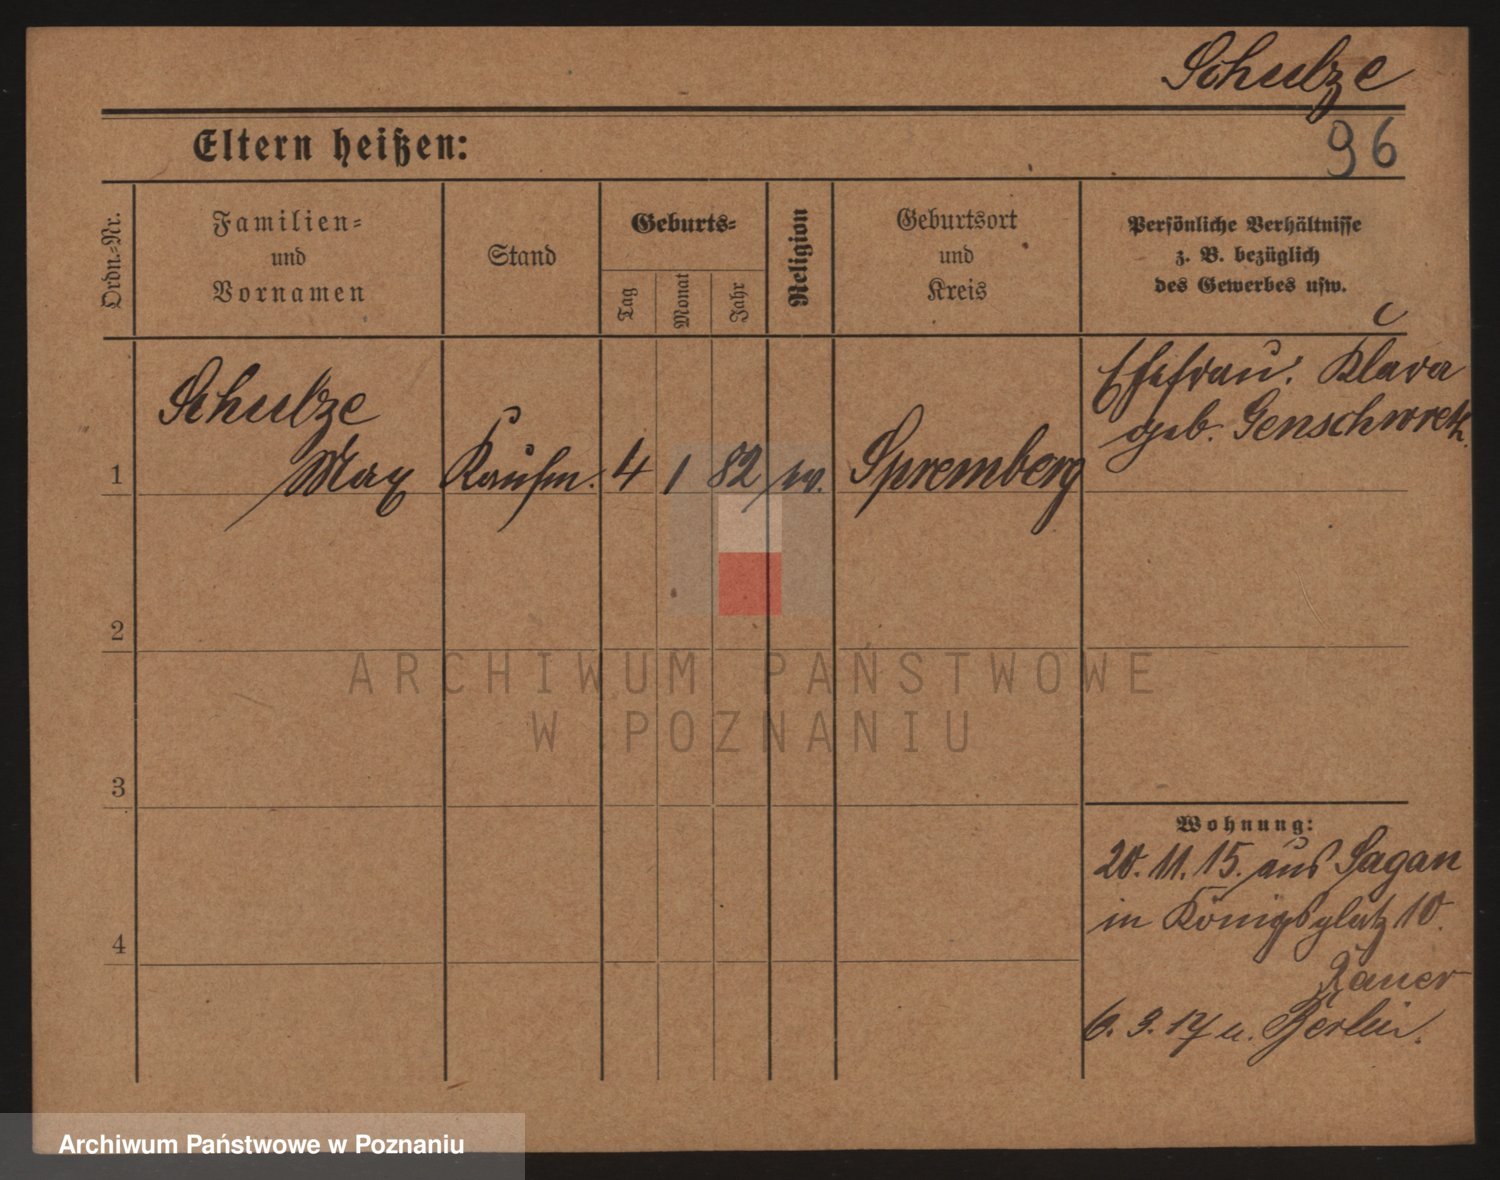 Schulze
Eltern heißen:
96
Ordn.-Nr.
Familien-
und
Vornamen
Stand
Geburts-
Tag
Monat
Jahr
Religion
Geburtsort
und
Kreis
Persönliche Verhältnisse
z. B. bezüglich
des Gewerbes usw.
Schulze
Max
Kaufm.
4
1
82
ev.
Spremberg
Ehefrau. Klara
geb.
1
2
3
4
Wohnung:
20. 11. 15. aus Sagan
in Königsplatz 10.
6. 3. 17 n. Berlin.
ARCHIWUM PAŃSTWOWE
W POZNANIU
Archiwum Państwowe w Poznaniu